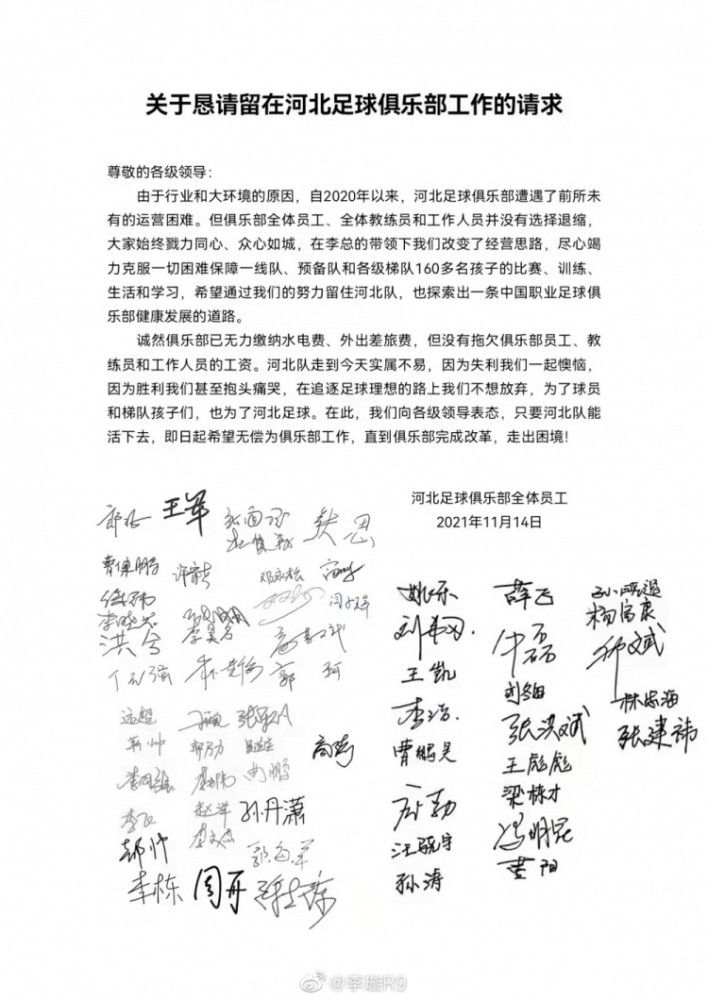 关于恳请留在河北足球俱乐部工作的请求
尊敬的各级领导：
由于行业和大环境的原因，自2020年以来，河北足球俱乐部遭遇了前所未
有的运营困难。但俱乐部全体员工、全体教练员和工作人员并没有选择退缩，
大家始终戮力同心、众心如城，在李总的带领下我们改变了经营思路，尽心竭
力克服一切困难保障一线队、预备队和各级梯队160多名孩子的比赛、训练、
生活和学习，希望通过我们的努力留住河北队，也探索出一条中国职业足球俱
乐部健康发展的道路。
诚然俱乐部已无力缴纳水电费、外出差旅费，但没有拖欠俱乐部员工、教
练员和工作人员的工资。河北队走到今天实属不易，因为失利我们一起懊恼，
因为胜利我们甚至抱头痛哭，在追逐足球理想的路上我们不想放弃，为了球员
和梯队孩子们，也为了河北足球。在此，我们向各级领导表态，只要河北队能
活下去，即日起希望无偿为俱乐部工作，直到俱乐部完成改革，走出困境！
河北足球俱乐部全体员工
2021年11月14日
王军
曹保鹏
洪兮
郭珂
远超
孙丹潇
李栋 周开
姚乐
王凯
李浩
曹鹏昊
孙涛
薛飞
张洪斌
王彪彪
梁栋才
冯明昆
黄阳
杨富康
林志海
张建祎
@李璇R9